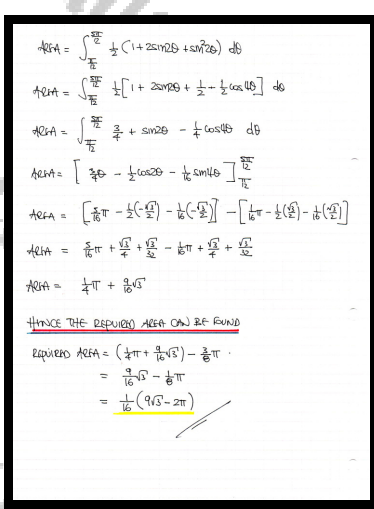 AREA = ∫_{π/12}^{5π/12} 1/2 (1 + 2sin2θ + sin²2θ) dθ
AREA = ∫_{π/12}^{5π/12} 1/2 [1 + 2sin2θ + 1/2 + 1/2 cos4θ] dθ
AREA = ∫_{π/12}^{5π/12} 3/4 + sin2θ - 1/4 cos4θ dθ
AREA = [3/4 θ - 1/2 cos2θ - 1/16 sin4θ]_{π/12}^{5π/12}
AREA = [5/16 π - 1/2(-√3/2) - 1/16(-√3/2)] - [1/16 π - 1/2(√3/2) - 1/16(√3/2)]
AREA = 5/16 π + √3/4 + √3/32 - 1/16 π + √3/4 + √3/32
AREA = 1/4 π + 9/16 √3
HENCE THE REQUIRED AREA CAN BE FOUND
REQUIRED AREA = (1/4 π + 9/16 √3) - 3/8 π
= 9/16 √3 - 1/8 π
= 1/16 (9√3 - 2π)